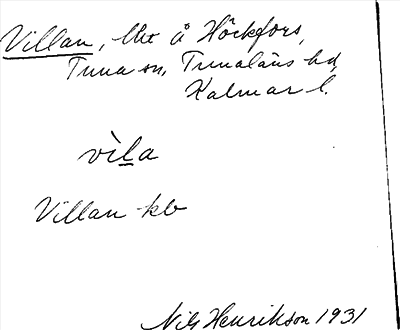 Villan, lht å Höckfors,
Tuna sn, Tunaläns hd,
Kalmar l.
vìla
Villan kb
Nils Henrikson 1931